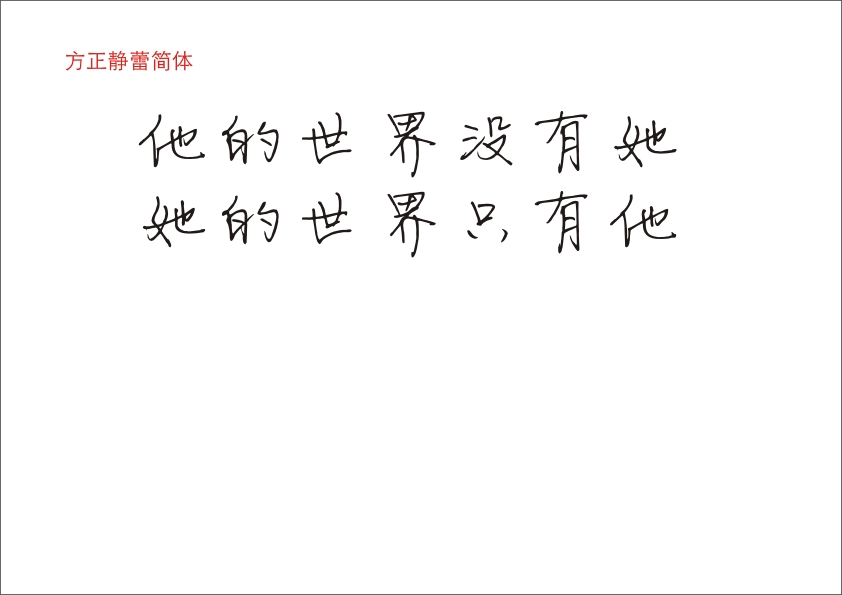 方正静蕾简体
他的世界没有她
她的世界只有他